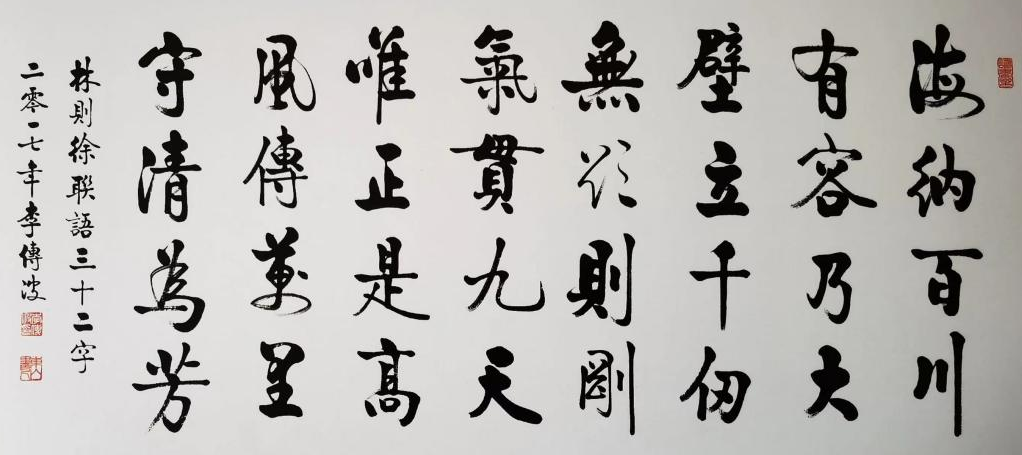 海納百川
有容乃大
壁立千仞
無欲則剛
氣貫九天
唯正是高
風傳萬里
守清為芳
林則徐聯語三十二字
二零一七年李傳波